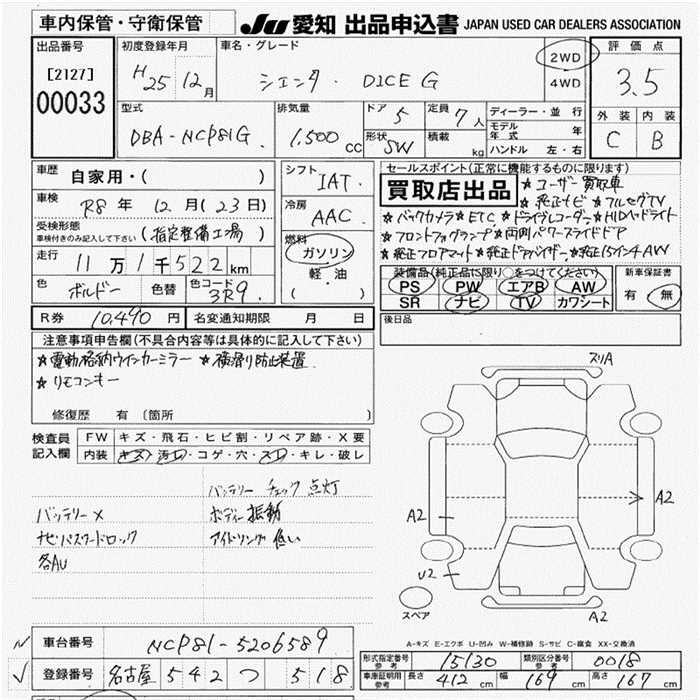 車内保管・守衛保管
JU 愛知 出品申込書 JAPAN USED CAR DEALERS ASSOCIATION
出品番号
[2127]
00033
初度登録年月
H25 12月
車名・グレード
シエンタ・DICE G
2WD
4WD
評価点
3.5
外装 内装
C B
型式
DBA-NCP81G
排気量
1,500cc
ドア 5
形状 SW
定員 7人
積載 kg
ディーラー・並行
モデル年式 年
ハンドル 左・右
車歴
自家用・( )
車検
R8年 12月(23日)
受検形態
車検付きのみ記入して下さい
(指定整備工場)
走行
11万1千522km
色
ボルドー
色替
色コード
3R9
シフト
IAT
冷房
AAC
燃料
ガソリン
軽・油
( )
R券 10,490円
名変通知期限 月 日
セールスポイント(正常に機能するものに限ります)
買取店出品
★ユーザー買取車
★純正ナビ★フルセグTV
★バックカメラ★ETC★ドライブレコーダー★HIDヘッドライト
★フロントフォグランプ★両側パワースライドドア
★純正フロアマット★純正ドアバイザー★純正15インチAW
装備品(純正品に限り○をつけてください)
PS PW エアB AW
SR ナビ TV カワシート
新車保証書
有・無
後日品
注意事項申告欄(不具合内容等は具体的に記入して下さい)
★電動格納ウインカーミラー ★横滑り防止装置
★リモコンキー
修復歴 有 〔箇所 〕
検査員
記入欄
FW キズ・飛石・ヒビ割・リペア跡・X要
内装 キズ・汚レ・コゲ・穴・スレ・キレ・破レ
バッテリー チェック点灯
バッテリーX ボディー振動
ナビパスワードロック アイドリング低い
各AU
スリA
A2
A2
U2
スペア
A2
A-キズ E-エクボ U-凹み W-補修跡 S-サビ C-腐食 XX-交換済
車台番号 NCP81-5206589
登録番号 名古屋 542 つ 518
形式指定番号
参考
15130
類別区分番号
参考
0018
車庫証明用
参考
長さ 412cm 幅 169cm 高さ 167cm